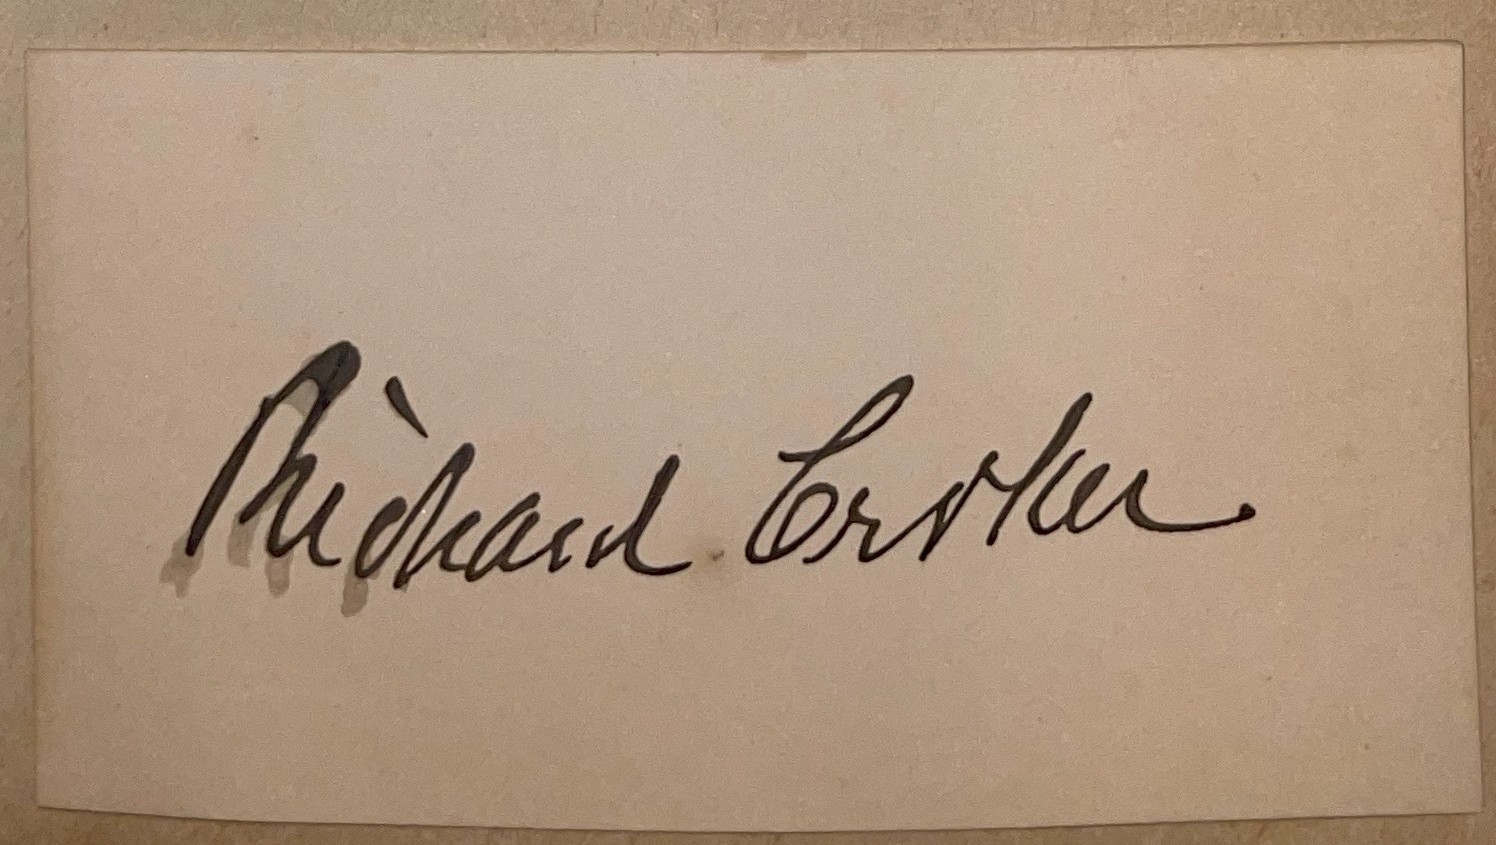 Richard Croker